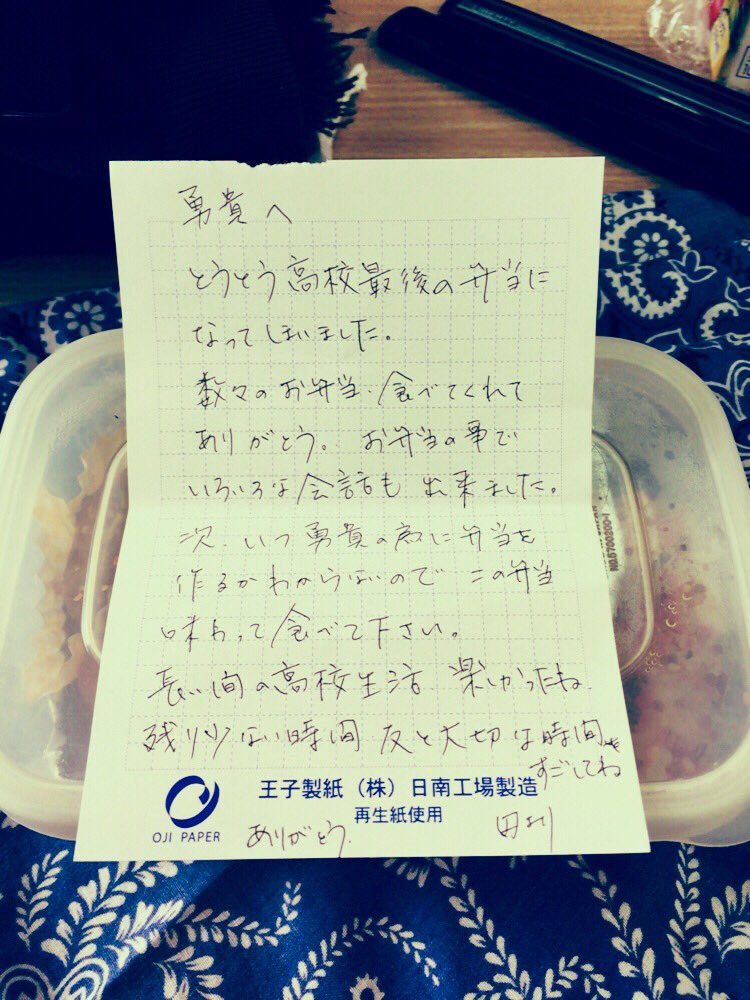 勇貴へ
とうとう高校最後の弁当に
なってしまいました。
数々のお弁当、食べてくれて
ありがとう。お弁当の事で
いろいろな会話も出来ました。
次、いつ勇貴の為に弁当を
作るかわからないので この弁当
味わって食べて下さい。
長い間の高校生活 楽しかったね
残り少ない時間 友と大切な時間を
すごしてね
王子製紙（株）日南工場製造
再生紙使用
OJI PAPER
ありがとう。
より